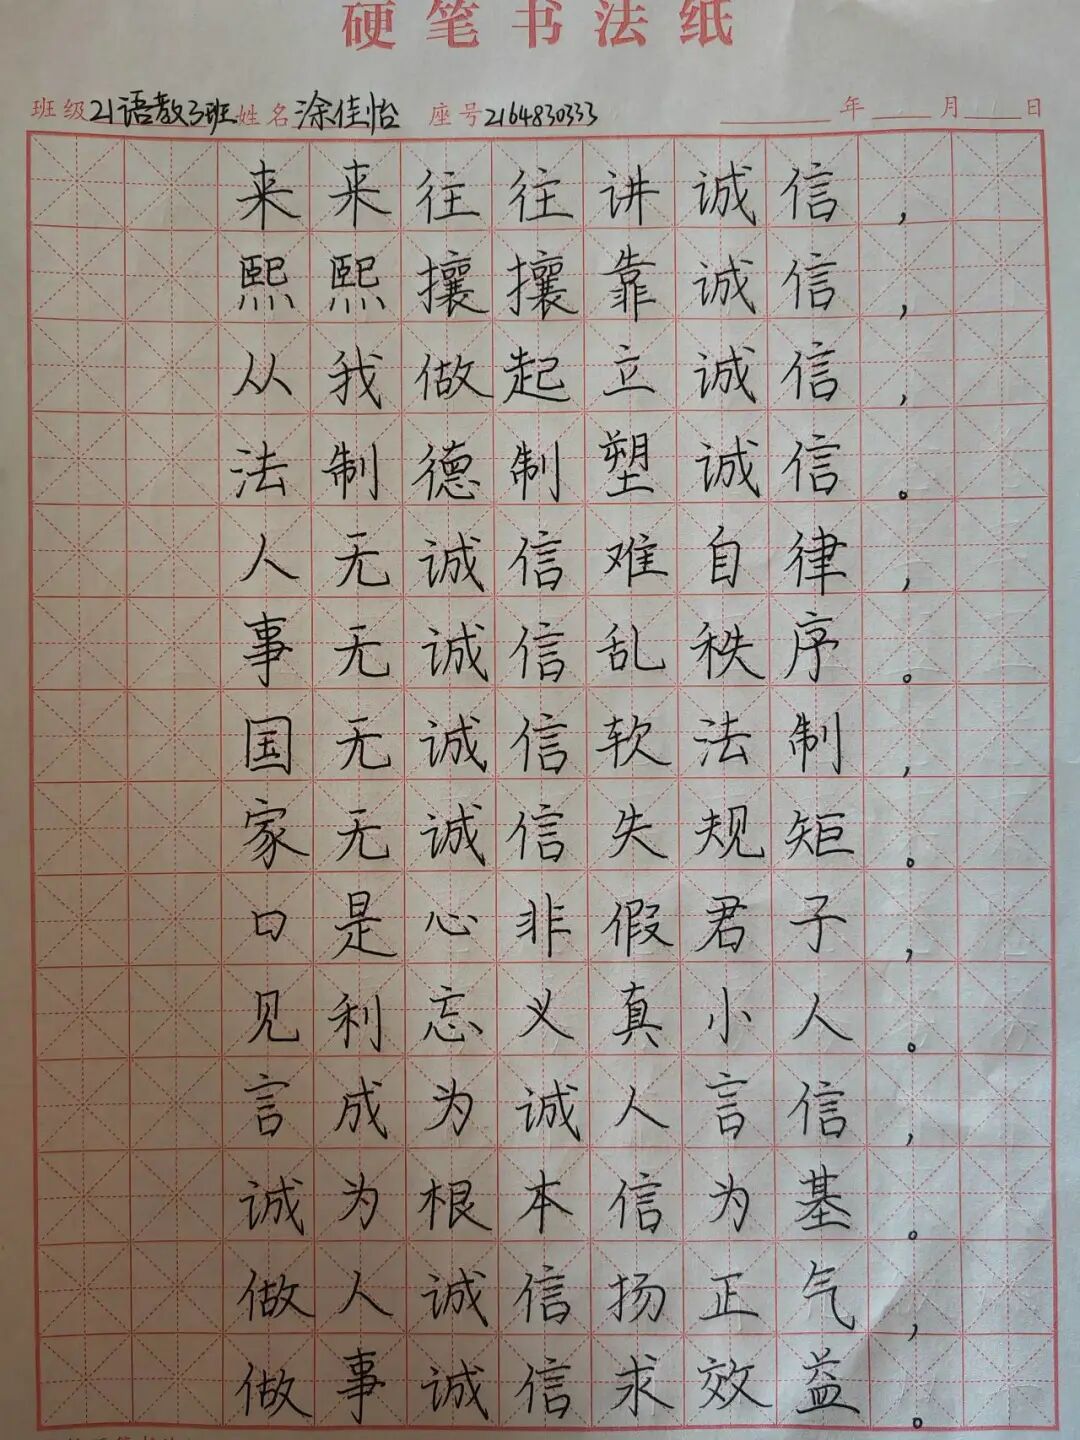 硬笔书法纸
班级 21语教3班 姓名 涂佳怡 座号 2164830333 年 月 日
来来往往讲诚信，
熙熙攘攘靠诚信，
从我做起立诚信，
法制德制塑诚信。
人无诚信难自律，
事无诚信乱秩序。
国无诚信软法制，
家无诚信失规矩。
口是心非假君子，
见利忘义真小人。
言成为诚人言信，
诚为根本信为基。
做人诚信扬正气，
做事诚信求效益。